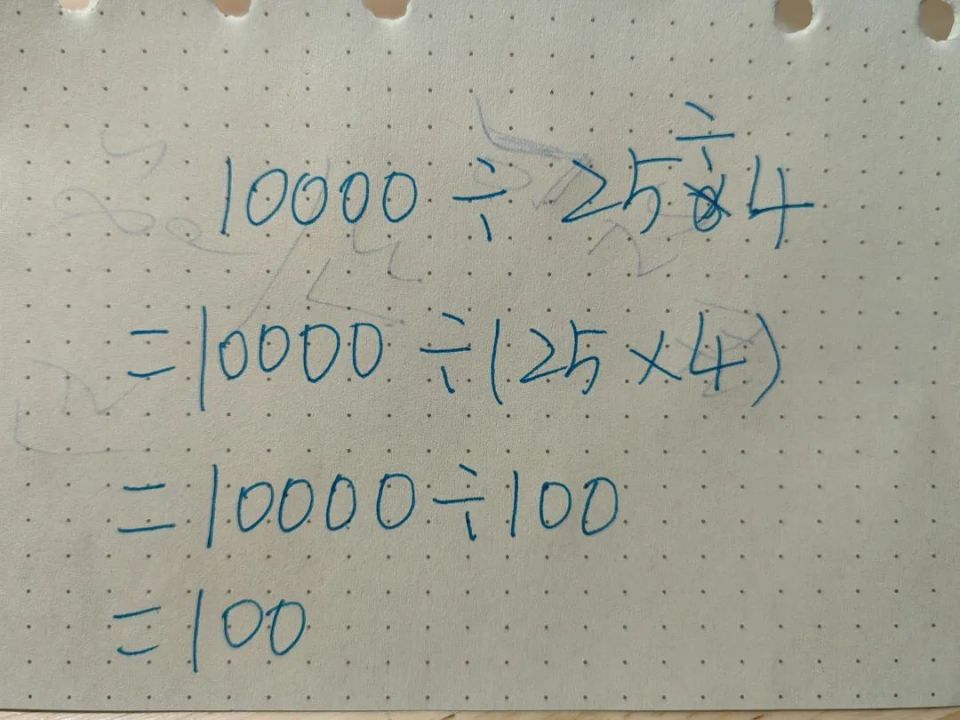 10000 ÷ 25 ÷ 4
= 10000 ÷ (25 × 4)
= 10000 ÷ 100
= 100